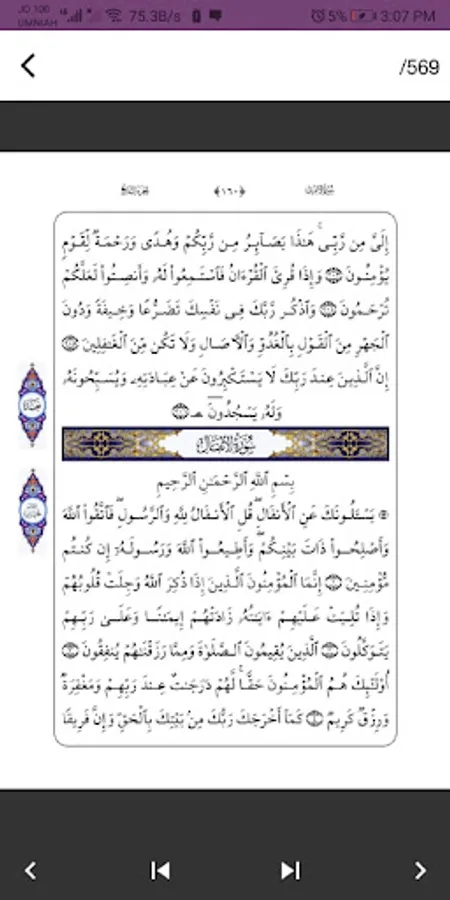 JO 106
UMNIAH
4G 75.3B/s 5% 3:07 PM
/569
﴿١٦٠﴾
إِلَىَّ مِن رَّبِّى هَٰذَا بَصَآئِرُ مِن رَّبِّكُمْ وَهُدًى وَرَحْمَةٌ لِّقَوْمٍ
يُؤْمِنُونَ وَإِذَا قُرِئَ الْقُرْءَانُ فَاسْتَمِعُوا لَهُۥ وَأَنصِتُوا لَعَلَّكُمْ
تُرْحَمُونَ وَاذْكُر رَّبَّكَ فِى نَفْسِكَ تَضَرُّعًا وَخِيفَةً وَدُونَ
الْجَهْرِ مِنَ الْقَوْلِ بِالْغُدُوِّ وَالْأٓصَالِ وَلَا تَكُن مِّنَ الْغَٰفِلِينَ
إِنَّ الَّذِينَ عِندَ رَبِّكَ لَا يَسْتَكْبِرُونَ عَنْ عِبَادَتِهِۦ وَيُسَبِّحُونَهُۥ
وَلَهُۥ يَسْجُدُونَ
سُورَةُ الْأَنفَالِ
بِسْمِ اللَّهِ الرَّحْمَٰنِ الرَّحِيمِ
يَسْـَٔلُونَكَ عَنِ الْأَنفَالِ قُلِ الْأَنفَالُ لِلَّهِ وَالرَّسُولِ فَاتَّقُوا اللَّهَ
وَأَصْلِحُوا ذَاتَ بَيْنِكُمْ وَأَطِيعُوا اللَّهَ وَرَسُولَهُۥ إِن كُنتُم
مُّؤْمِنِينَ إِنَّمَا الْمُؤْمِنُونَ الَّذِينَ إِذَا ذُكِرَ اللَّهُ وَجِلَتْ قُلُوبُهُمْ
وَإِذَا تُلِيَتْ عَلَيْهِمْ ءَايَٰتُهُۥ زَادَتْهُمْ إِيمَٰنًا وَعَلَىٰ رَبِّهِمْ
يَتَوَكَّلُونَ الَّذِينَ يُقِيمُونَ الصَّلَوٰةَ وَمِمَّا رَزَقْنَٰهُمْ يُنفِقُونَ
أُولَٰٓئِكَ هُمُ الْمُؤْمِنُونَ حَقًّا لَّهُمْ دَرَجَٰتٌ عِندَ رَبِّهِمْ وَمَغْفِرَةٌ
وَرِزْقٌ كَرِيمٌ كَمَآ أَخْرَجَكَ رَبُّكَ مِنۢ بَيْتِكَ بِالْحَقِّ وَإِنَّ فَرِيقًا